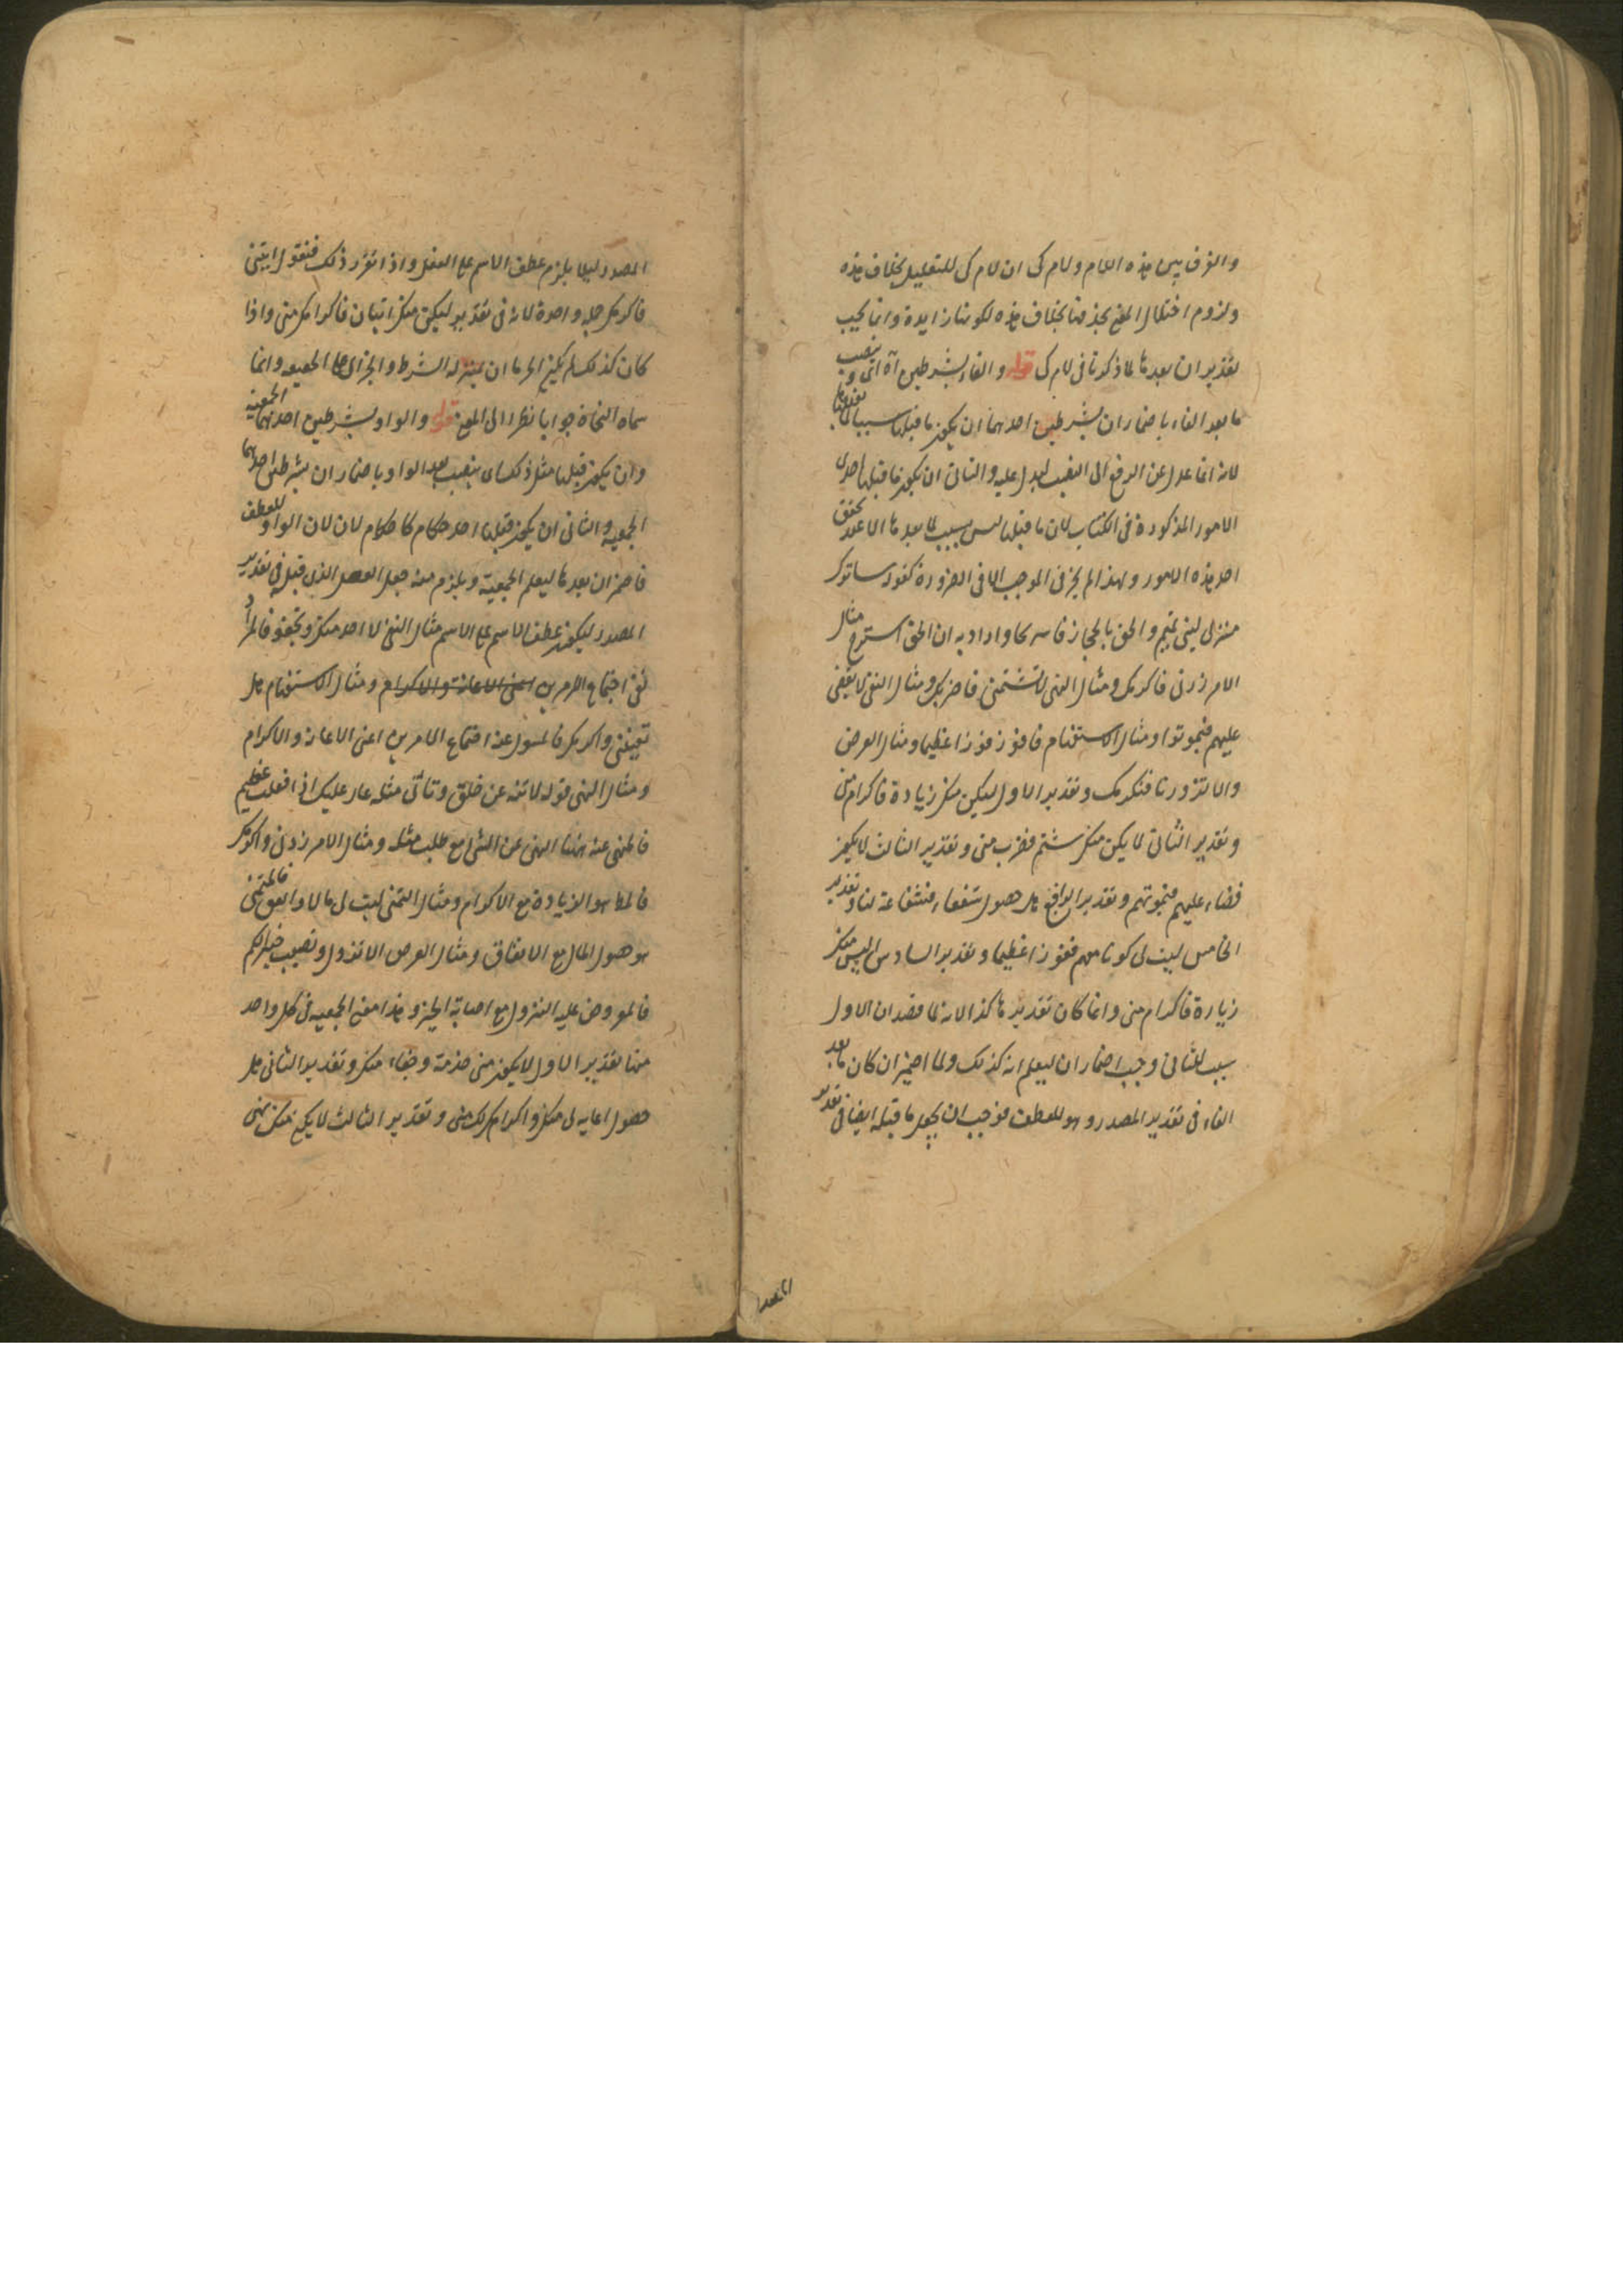 والفرق بين هذه اللام ولام كى ان لام كى للتعليل بخلاف هذه
ولزوم اختلال المعنى بحذفها بخلاف هذه لكونها زايدة وانما يجب
تقدير ان بعدها لما ذكرنا فى لام كى قوله والفاء بشرطين اه اى وينصب
ما بعد الفاء باضمار ان بشرطين احدهما ان يكون ما قبلها سببا لما بعدها
لانه انما عدل عن الرفع الى النصب ليدل عليه والثانى ان يكون ما قبلها احدى
الامور المذكورة فى الكتاب لان ما قبلها ليس بسبب لما بعدها الا عند تحقق
احد هذه الامور ولهذا لم يجز فى الموجب الا فى الضرورة كقوله ساترك
منزلى لبنى تميم والحق بالحجاز فاستريحا واراد به ان الحق استرح مثال
الامر زرنى فاكرمك ومثال النهى لا تشتمنى فاضربك ومثال النفى لا يقضى
عليهم فيموتوا ومثال الاستفهام فافوز فوزا عظيما ومثال العرض
والا تزورنا فنكرمك وتقدير الاول ليكن منك زيادة فاكرام منى
وتقدير الثانى لا يكن منك شتم فضرب منى وتقدير الثالث لا يكون
قضاء عليهم فيموتهم وتقدير الرابع هل حصول شفعاء فشفاعة لنا وتقدير
الخامس ليت لى كونا معهم ففوزا عظيما وتقدير السادس اليس منك
زيارة فاكرام منى وانما كان تقديرها كذا لانه لما قصد ان الاول
سبب للثانى وجب اضمار ان ليعلم انه كذلك ولما اضمر ان كان ما بعد
الفاء فى تقدير المصدر وهو للعطف فوجب ان يجعل ما قبله ايضا فى تقدير
المصدر ليلا يلزم عطف الاسم على الفعل واذا تقرر ذلك فنقول ايتنى
فاكرمك جملة واحدة لانه فى تقدير ليكن منك اتيان فاكرامك منى واذا
كان كذلك لم يكن الامر ان بمنزلة الشرط والجزاء على الجمعيه وانما
سماه النحاة جوابا نظرا الى المعنى قوله والواو بشرطين احدهما الجمعية
وان يكون قبلها مثل ذلك اى ينصب بعد الواو باضمار ان بشرطين احدهما
الجمعية والثانى ان يكون قبلها احد لان الواو للعطف
فاضمر ان بعدها ليعلم الجمعية ويلزم منه جعل الفعل الذى قبله فى تقدير
المصدر ليكون عطف الاسم على الاسم مثال النفى
نفى اجتماع الامرين اعنى الاعانة والاكرام ومثال الاستفهام هل
تعيننى واكرمك فالمسول عنه اجتماع الامرين اعنى الاعانة والاكرام
ومثال النهى قوله لا تنه عن خلق وتاتى مثله عار عليك اذا فعلت عظيم
فالمنهى عنه ههنا النهى عن الشى مع طلب مثله ومثال الامر زدنى واكرمك
هو الزيادة مع الاكرام ومثال التمنى ليت لى مالا وانفق فالمتمنى
هو حصول المال مع الانفاق ومثال العرض الا تنزل ونصيب خيرا لكم
فالمعروض عليه النزول مع اصابة الخير وهذا معنى الجمعيه فى كل واحد
منها تقدير الاول لا يكون منى خدمة وجفاء منك وتقدير الثانى هل
حصول اعانه لى منك واكرام لك منى وتقدير الثالث لا يكن منك نهى